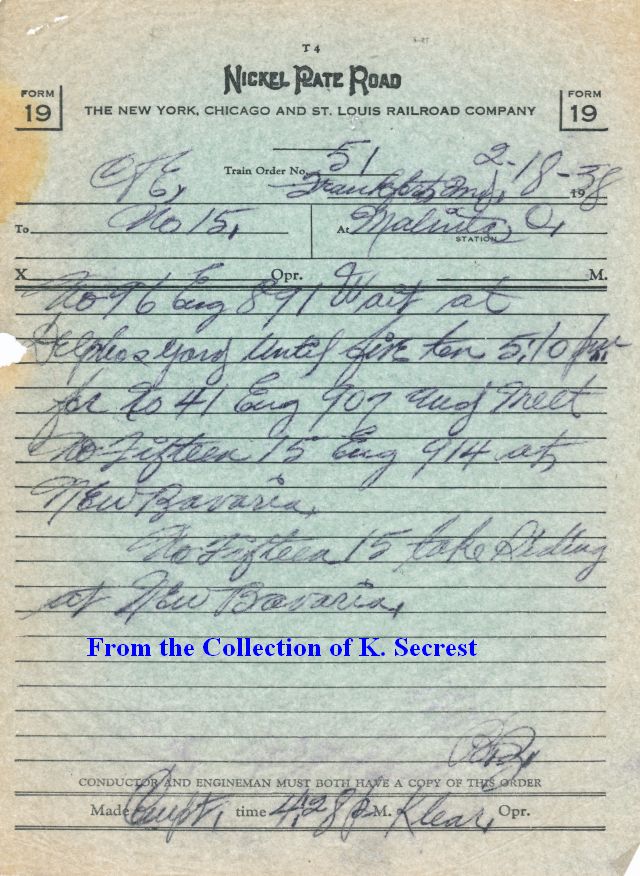 T 4
NICKEL PLATE ROAD
FORM 19
THE NEW YORK, CHICAGO AND ST. LOUIS RAILROAD COMPANY
FORM 19
Train Order No. 51 2-18-38
C&E, Frankfort, Ind, 19
To No 15, At Malinta, O,
STATION
X Opr. M.
No 96 Eng 891 Wait at
Delphos yard Until five ten 5:10 pm
for No 41 Eng 907 and Meet
No Fifteen 15 Eng 914 at
New Bavaria,
No Fifteen 15 take Siding
at New Bavaria,
From the Collection of K. Secrest
CONDUCTOR AND ENGINEMAN MUST BOTH HAVE A COPY OF THIS ORDER
Made Compt, time 4:28 P M. Klear, Opr.